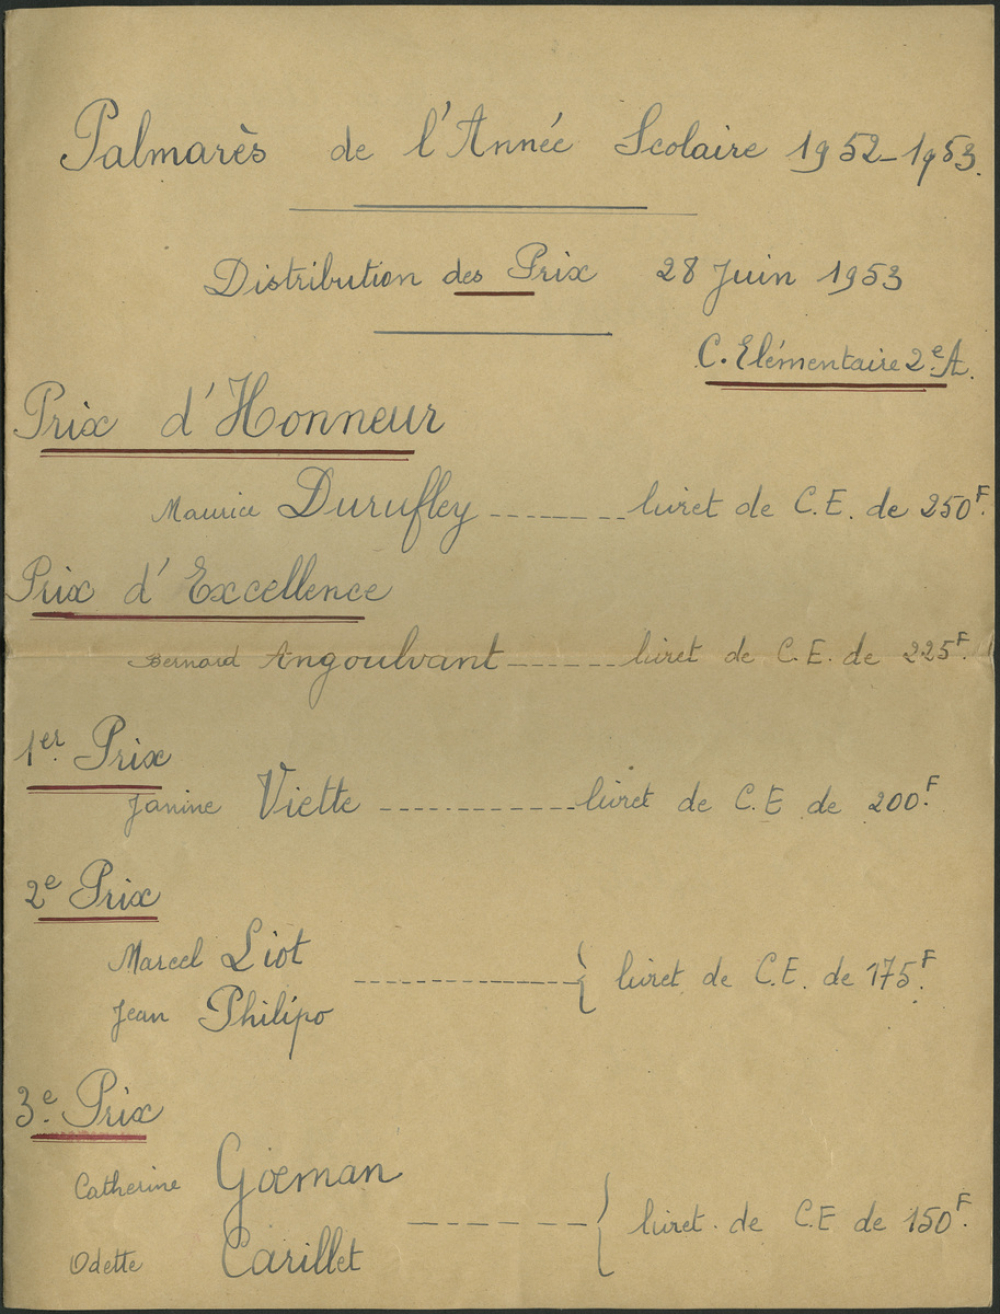 Palmarès de l'Année Scolaire 1952-1953.
Distribution des Prix 28 Juin 1953
C. Elémentaire 2e A.
Prix d'Honneur
Maurice Durufley ------- livret de C.E. de 250F.
Prix d'Excellence
Bernard Angoulvant ------ livret de C.E. de 225F.
1er Prix
Janine Viette ----------- livret de C.E de 200F.
2e Prix
Marcel Liot
------------- { livret de C.E. de 175F.
Jean Philipo
3e Prix
Catherine Goeman
------ { livret de C.E. de 150F.
Odette Carillet